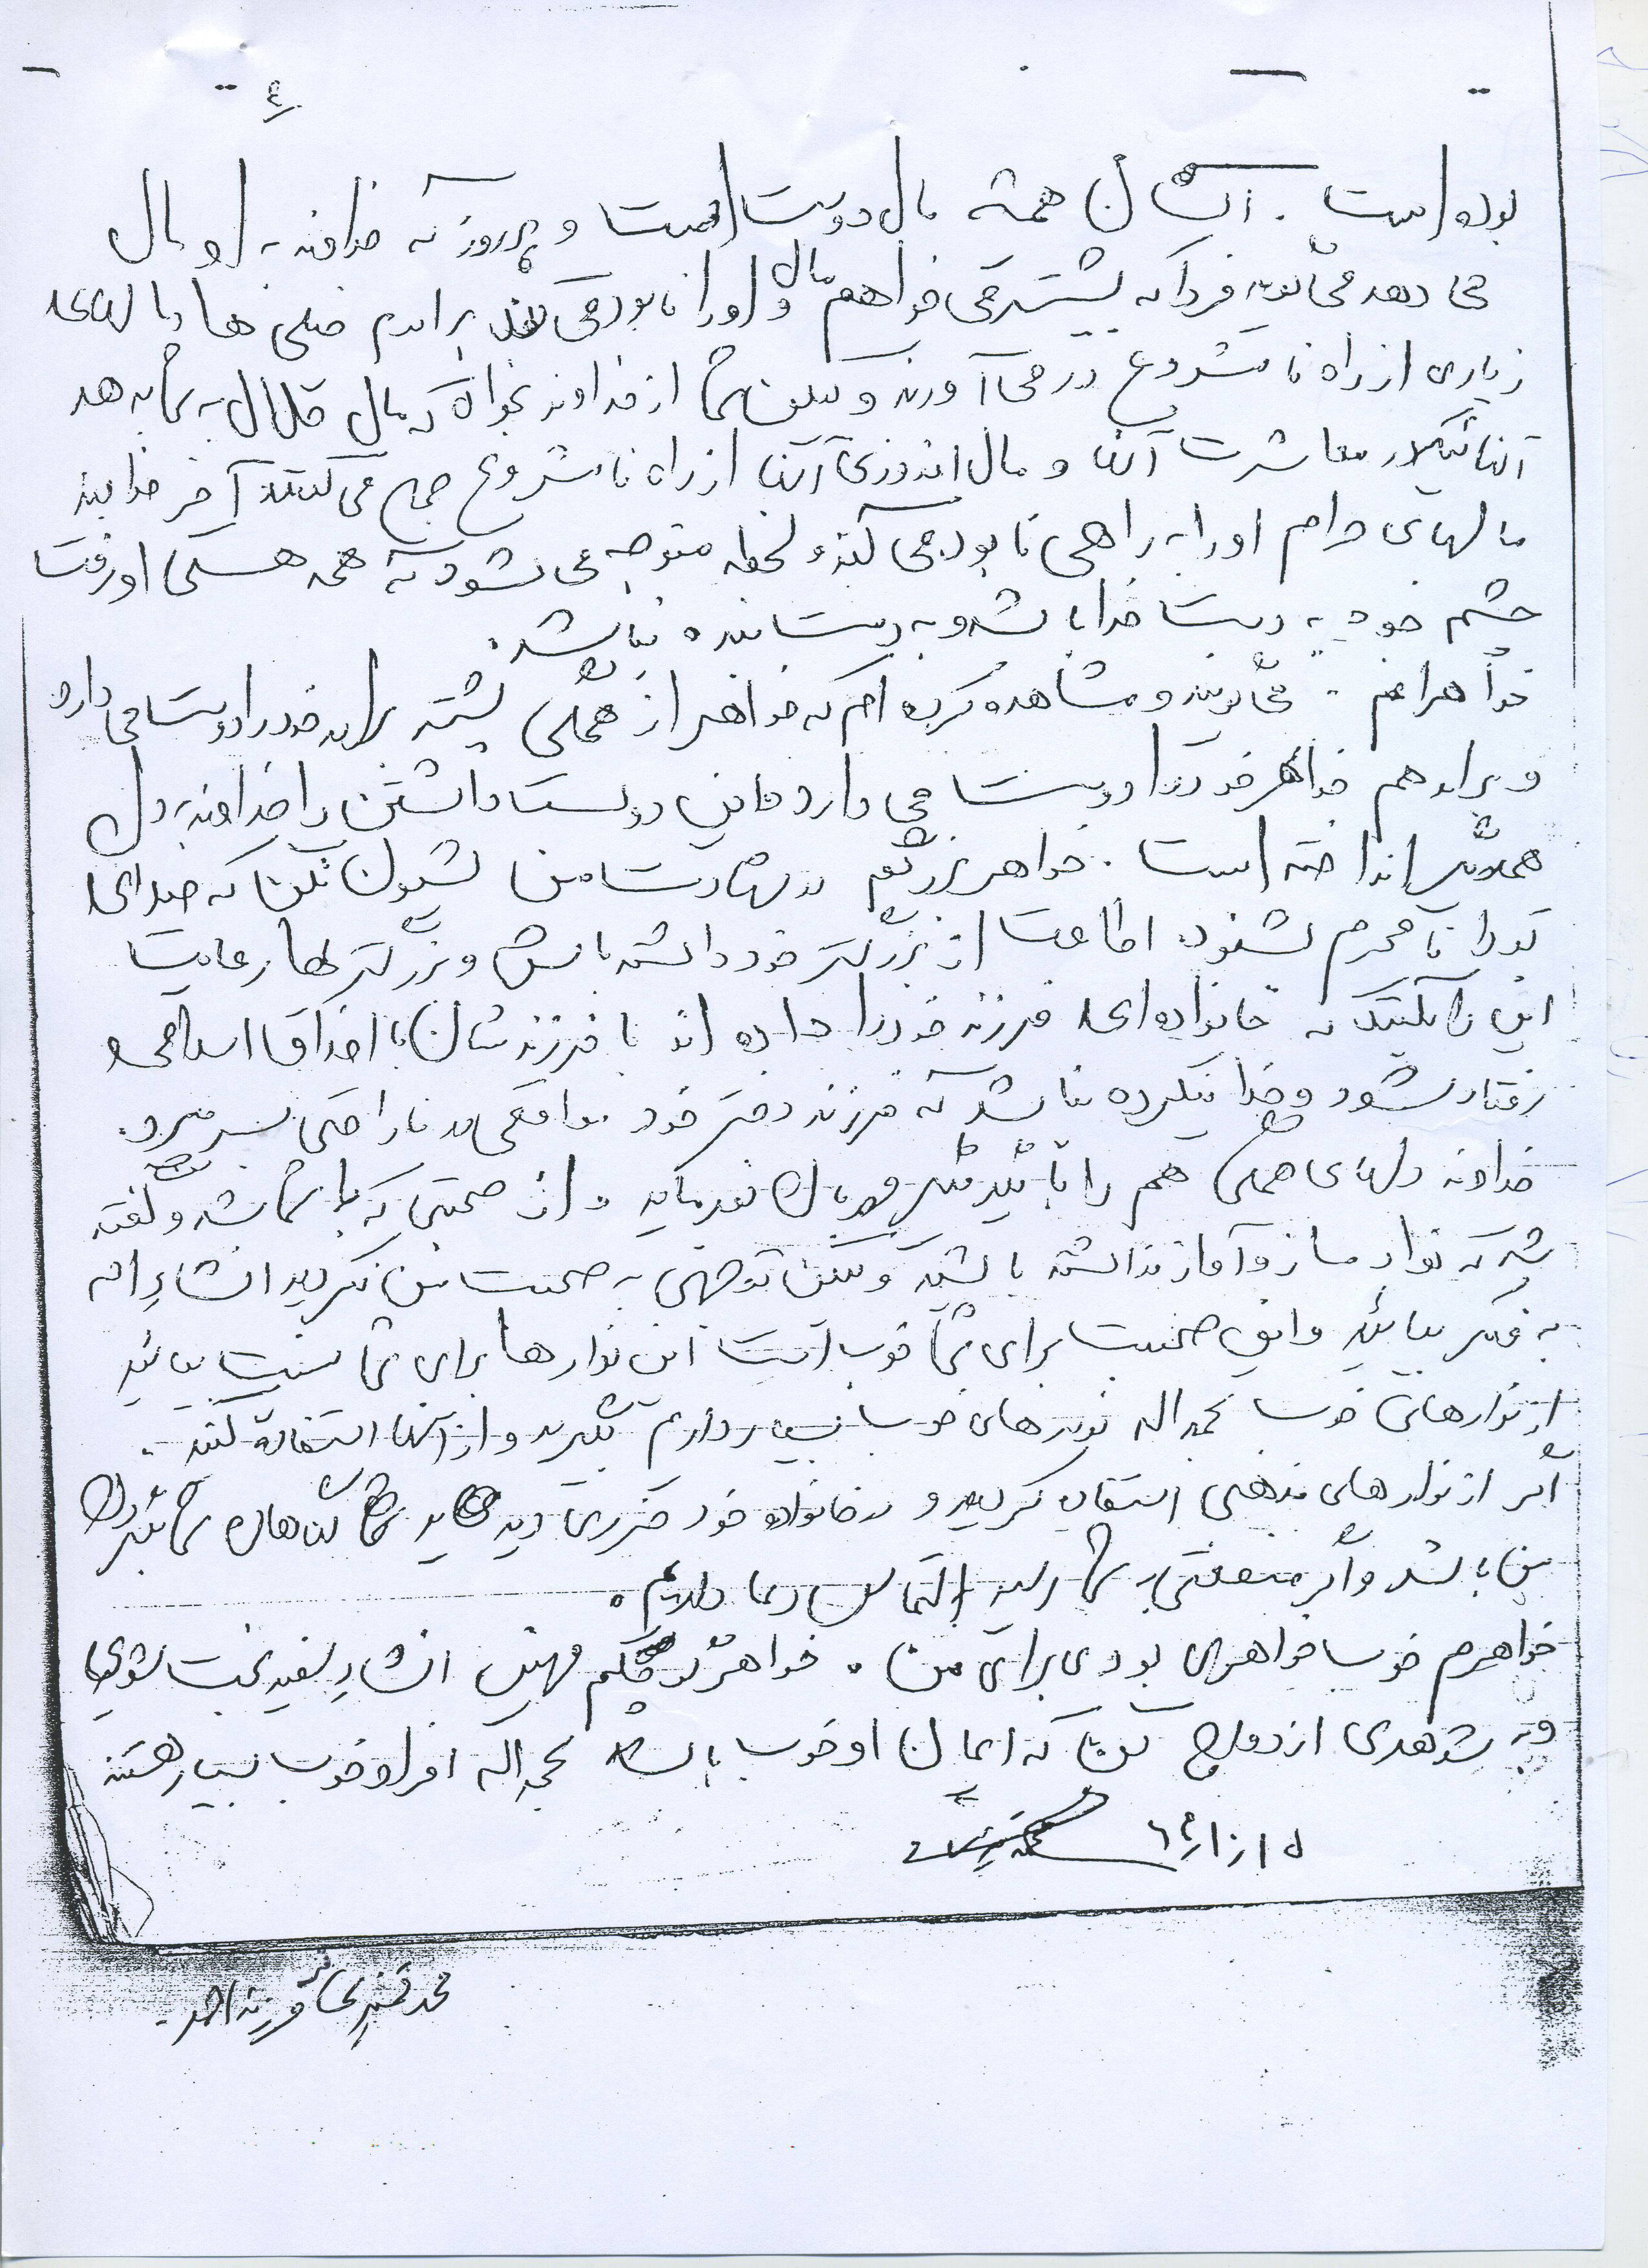 ٤
بوده است. انسان همیشه مال دوست است و هر روز که خداوند به او مال
می دهد می گوید فردا که بیشتر می خواهم مال و او را نابود می کند برادرم خیلی ها مالهای
زیادی از راه نامشروع در می آورند ولیکن شما از خداوند بخواه که مال حلال به شما بدهد
معاشرت آنها و مال اندوزی آنها از راه نامشروع جمع می کنند آخر خداوند
مالهای حرام او را به راهی نابود می کند و لحظه متوجه می شود که همه هستی او رفت
چشم خود به دست خدا باشد و به دست بنده نباشد.
خواهرانم. می گویند و مشاهده کرده ام که خواهر از همگی بیشتر برادر خود را دوست می دارد
و برادر هم خواهر خود را دوست می دارد و این دوست داشتن را خداوند به دل
همدیگر انداخته است. خواهر بزرگم در شهادت من شیون نکن که صدای
تو را نامحرم بشنود اطاعت از بزرگتر خود داشته باش و بزرگترها رعایت
این را بکنید که خانواده ای فرزند خود را داده اند با فرزندشان با اخلاق اسلامی
رفتار شود و خدا نیکرده نباشد که فرزند دختر خود مواقعی در ناراحتی بسر میبرد.
خداوند دلهای همگی هم را با یکدیگر مهربان بفرماید و از صحبتی که با شما شد و گفته
شد که نوار ساز و آواز نداشته باشید ولیکن توجهی به صحبت من نکردید انشاءاله
به فکر بیائید و این صحبت برای شما خوب است این نوارها برای شما نیست بیائید
از نوارهای خوب بحمداله نوارهای خوب بسیار داریم بگیرید و از آنها استفاده کنید.
اگر از نوارهای مذهبی استفاده کردید و در خانواده خود ضرری دیدید گناهان شما به گردن
من باشد و اگر منفعتی به شما رسید التماس دعا داریم.
خواهرم خوب خواهری بودی برای من. خواهر کوچکم مهین انشاءاله سفید بخت شوی
و به شوهری ازدواج کن که ایمان او خوب باشد بحمداله افراد خوب بسیار هستند